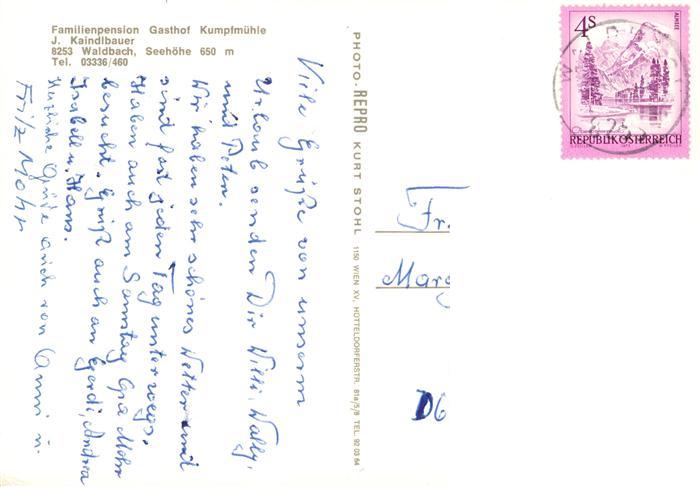 Familienpension Gasthof Kumpfmühle
J. Kaindlbauer
8253 Waldbach, Seehöhe 650 m
Tel. 03336/460
Viele Grüße von unserm
Urlaub senden Dir Willi, Wally,
und Peter.
Wir haben sehr schönes Wetter und
sind fast jeden Tag unterwegs.
Haben auch am Samstag Opa Mohr
besucht. Grüße auch an Gerdi, Andrea
Isabell u. Hans.
Herzliche Grüße auch von Anni u.
Fritz Mohr
PHOTO-REPRO KURT STOHL 1150 WIEN XV, HÜTTELDORFERSTR. 81a/5/8 TEL. 92 03 64
4S
ALMSEE
REPUBLIK ÖSTERREICH
Fr.
Marg
D6